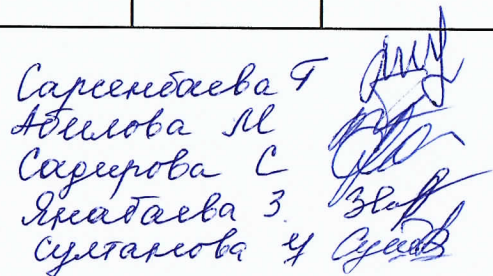 Сарсенбаева Г
Абилова М
Садирова С
Янабаева З.
Султанова У